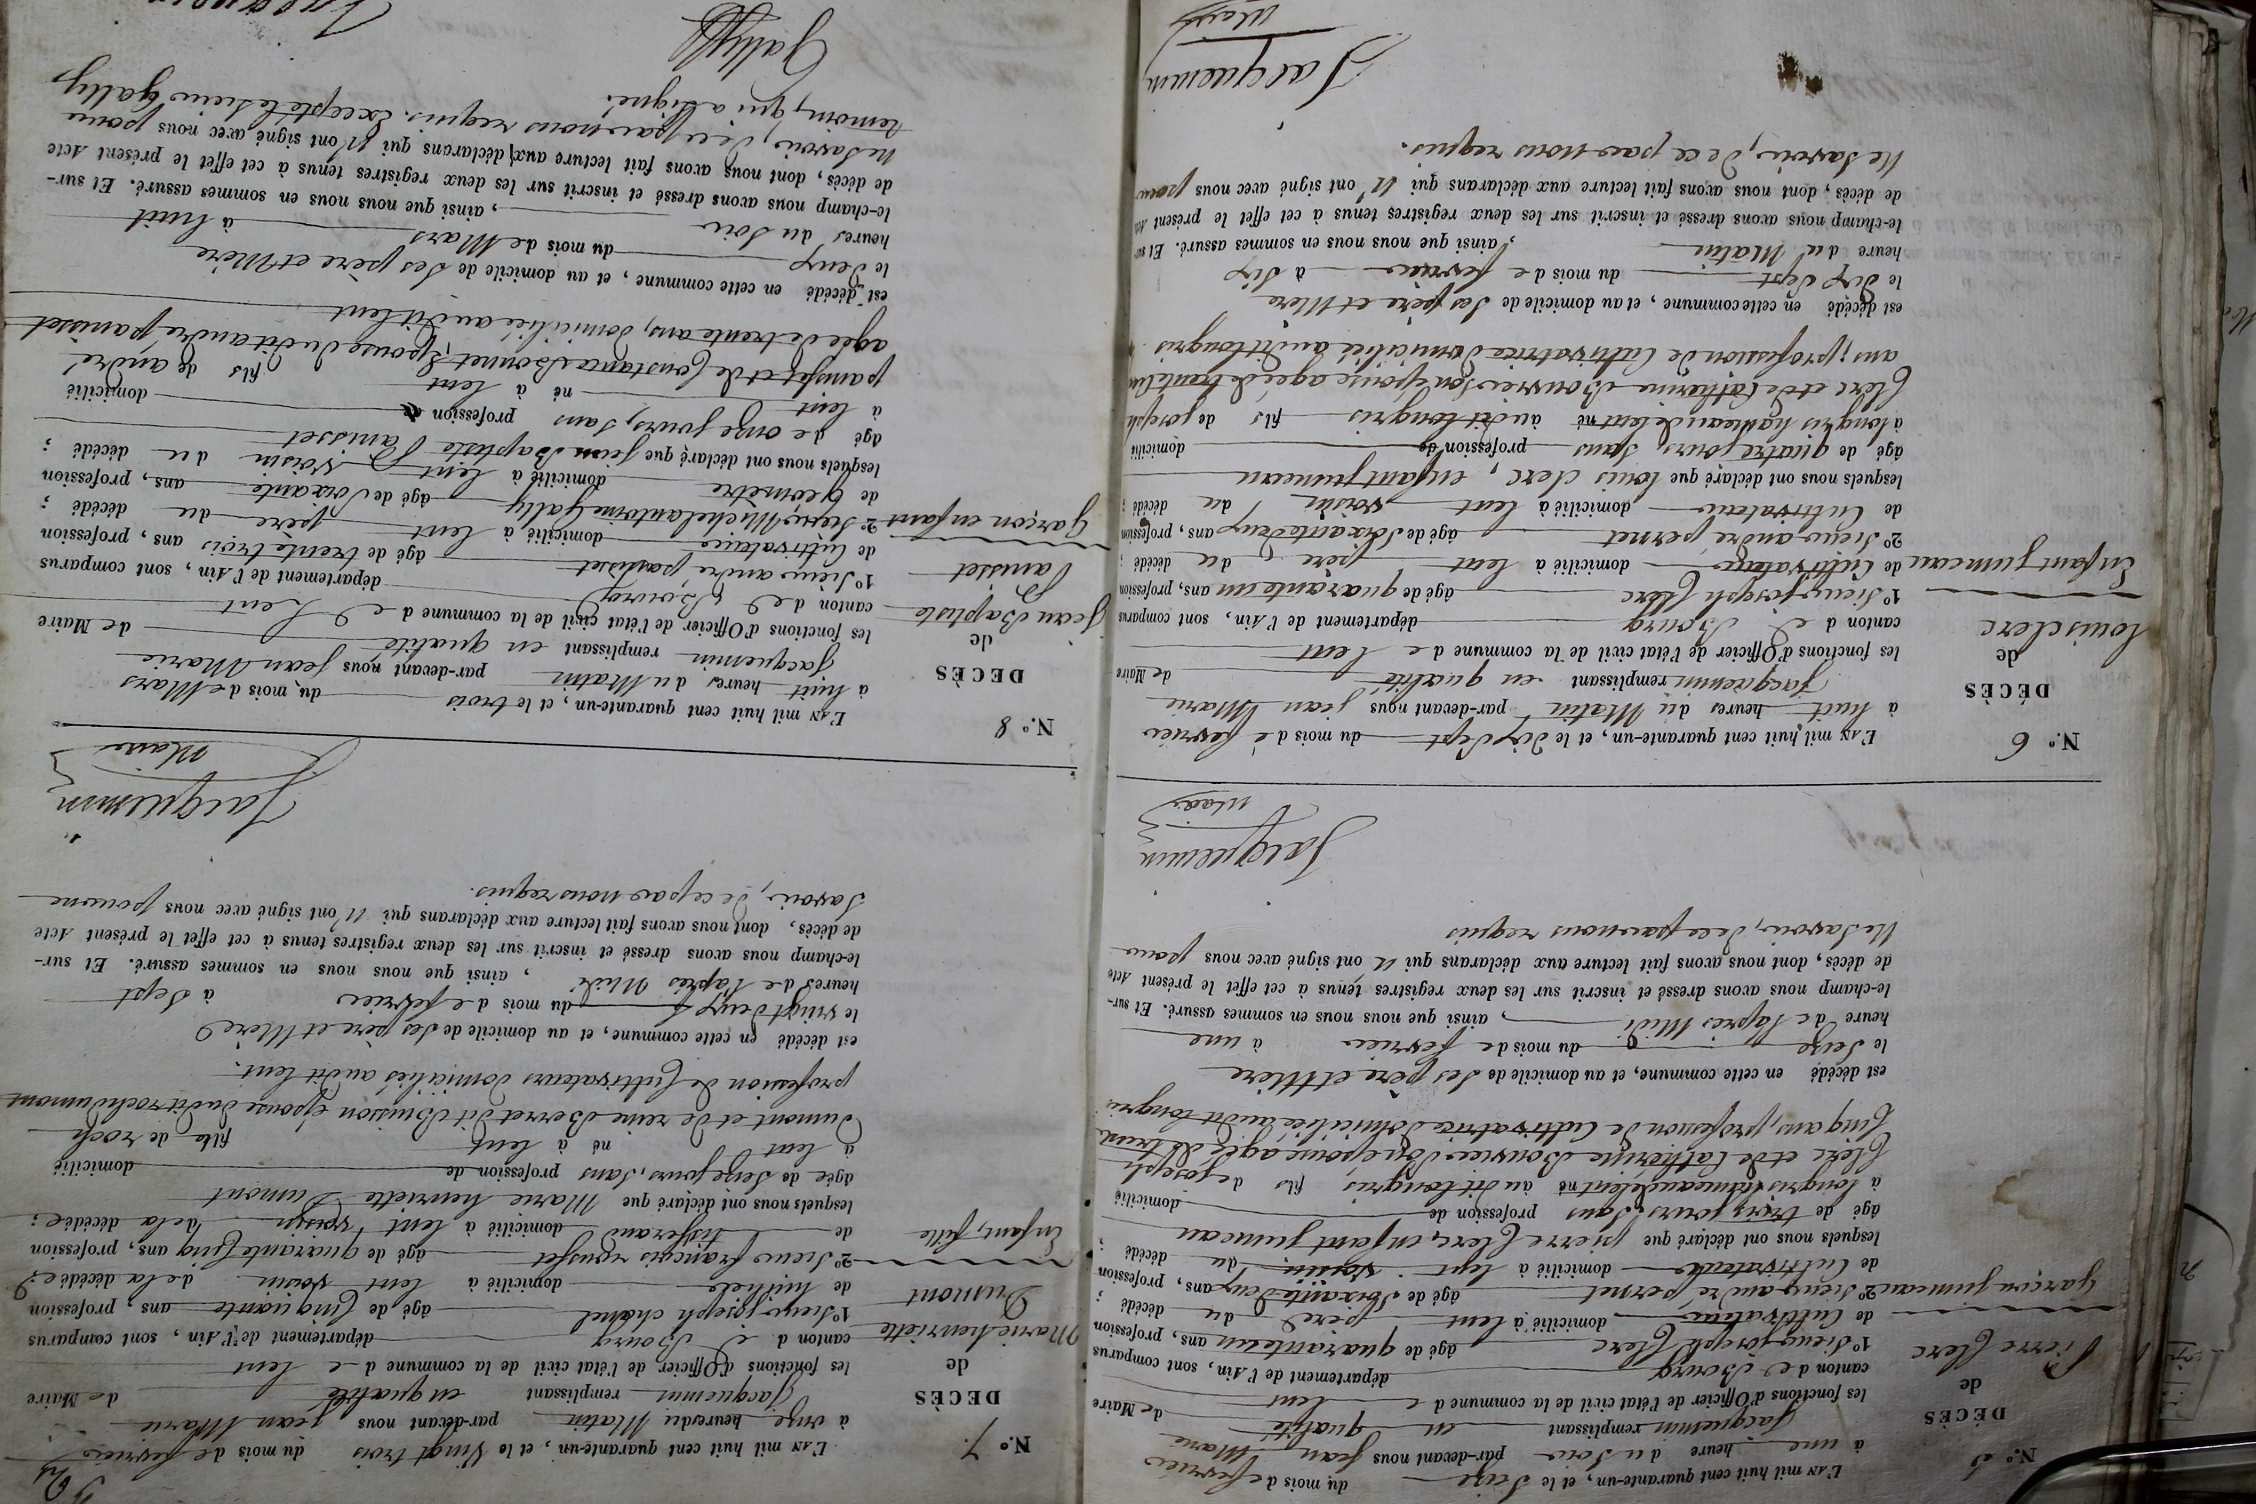 N.º 5
DÉCÈS
de
Pierre Clerc
Garçon jumeau
L'AN mil huit cent quarante-un, et le Seize du mois de fevrier
à une heure du Soir par-devant nous Jean Marie
Jacquemin remplissant en qualité de Maire
les fonctions d'Officier de l'état civil de la commune de Lent
canton de Bourg département de l'Ain, sont comparus
1º Sieur joseph Clerc âgé de quarante un ans, profession
de Cultivateur domicilié à Lent père du décédé ;
2º Sieur andré pernet âgé de Soixante deux ans, profession
de Cultivateur domicilié à Lent voisin du décédé ;
lesquels nous ont déclaré que pierre Clerc, enfant jumeau
âgé de trois jours, Sans profession de domicilié
à longris hameau de Lent né audit longris fils de joseph
Clerc et de Catherine Bouvier Son épouse agée de trente
Cinq ans, profession de Cultivatrice domiciliée audit longris
est décédé en cette commune, et au domicile de Ses père et Mère
le Seize du mois de fevrier à une
heure de l'après Midi, ainsi que nous nous en sommes assuré. Et sur-
le-champ nous avons dressé et inscrit sur les deux registres tenus à cet effet le présent Acte
de décès, dont nous avons fait lecture aux déclarans qui n'ont signé avec nous pour
Ne Savoir, de ce par nous requis
Jacquemin
Maire
N.º 6
DÉCÈS
de
Louis clerc
Enfant jumeau
L'AN mil huit cent quarante-un, et le dix Sept du mois de fevrier
à huit heures du Matin par-devant nous jean Marie
Jacquemin remplissant en qualité de Maire
les fonctions d'Officier de l'état civil de la commune de Lent
canton de Bourg département de l'Ain, sont comparus
1º Sieur joseph Clerc âgé de quarante un ans, profession
de Cultivateur domicilié à Lent père du décédé ;
2º Sieur andré pernet âgé de Soixante deux ans, profession
de Cultivateur domicilié à Lent voisin du décédé ;
lesquels nous ont déclaré que Louis clerc, enfant jumeau
âgé de quatre jours, Sans profession de domicilié
à longris hameau de Lent né audit longris fils de joseph
Clerc et de Catherine Bouvier Son épouse agée de trente cinq
ans, profession de Cultivatrice domiciliée audit longris
est décédé en cette commune, et au domicile de Ses père et Mère
le dix Sept du mois de fevrier à Six
heure du Matin, ainsi que nous nous en sommes assuré. Et sur
le-champ nous avons dressé et inscrit sur les deux registres tenus à cet effet le présent Acte
de décès, dont nous avons fait lecture aux déclarans qui N'ont signé avec nous pour
Ne Savoir, de ce par nous requis.
Jacquemin
Maire
N.º 7.
DÉCÈS
de
Marie henriette
Dumont
Enfant, fille
L'AN mil huit cent quarante-un, et le Vingt trois du mois de fevrier
à onze heures du Matin par-devant nous jean Marie
Jacquemin remplissant en qualité de Maire
les fonctions d'Officier de l'état civil de la commune de Lent
canton de Bourg département de l'Ain, sont comparus
1º Sieur joseph chanel âgé de Cinquante ans, profession
de domicilié à Lent voisin de la décédée ;
2º Sieur françois âgé de quarante Cinq ans, profession
de tisserand domicilié à Lent voisin de la décédée ;
lesquels nous ont déclaré que Marie henriette Dumont
âgée de Seize jours, Sans profession de domicilié
à Lent né à Lent fille de roch
Dumont et de reine Borrat dit Buisson épouse dudit roch dumont
profession de Cultivateurs domiciliés audit Lent.
est décédé en cette commune, et au domicile de Ses père et Mère
le vingt deux du mois de fevrier à Sept
heures de l'après Midi, ainsi que nous nous en sommes assuré. Et sur-
le-champ nous avons dressé et inscrit sur les deux registres tenus à cet effet le présent Acte
de décès, dont nous avons fait lecture aux déclarans qui N'ont signé avec nous pour ne
Savoir, de ce par nous requis.
Jacquemin
Maire
N.º 8
DÉCÈS
de
Jean Baptiste
Pansset
Garçon enfant
L'AN mil huit cent quarante-un, et le trois du mois de Mars
à huit heures du Matin par-devant nous jean Marie
Jacquemin remplissant en qualité de Maire
les fonctions d'Officier de l'état civil de la commune de Lent
canton de Bourg département de l'Ain, sont comparus
1º Sieur andré pansset âgé de trente trois ans, profession
de Cultivateur domicilié à Lent père du décédé ;
2º Sieur Michel antoine Gally âgé de Soixante ans, profession
de Géomètre domicilié à Lent voisin du décédé ;
lesquels nous ont déclaré que Jean Baptiste Pansset
âgé de onze jours, Sans profession de domicilié
à Lent né à Lent fils de andré
pansset et de Constance Bonnet, épouse dudit andré pansset
agée de trente ans, domiciliée audit Lent
est décédé en cette commune, et au domicile de Ses père et Mère
le deux du mois de Mars à huit
heures du Soir, ainsi que nous nous en sommes assuré. Et sur-
le-champ nous avons dressé et inscrit sur les deux registres tenus à cet effet le présent Acte
de décès, dont nous avons fait lecture aux déclarans qui N'ont signé avec nous pour
Ne Savoir, de ce par nous requis. Excepté le Sieur Gally
temoin, qui a Signé.
Gally
Jacquemin